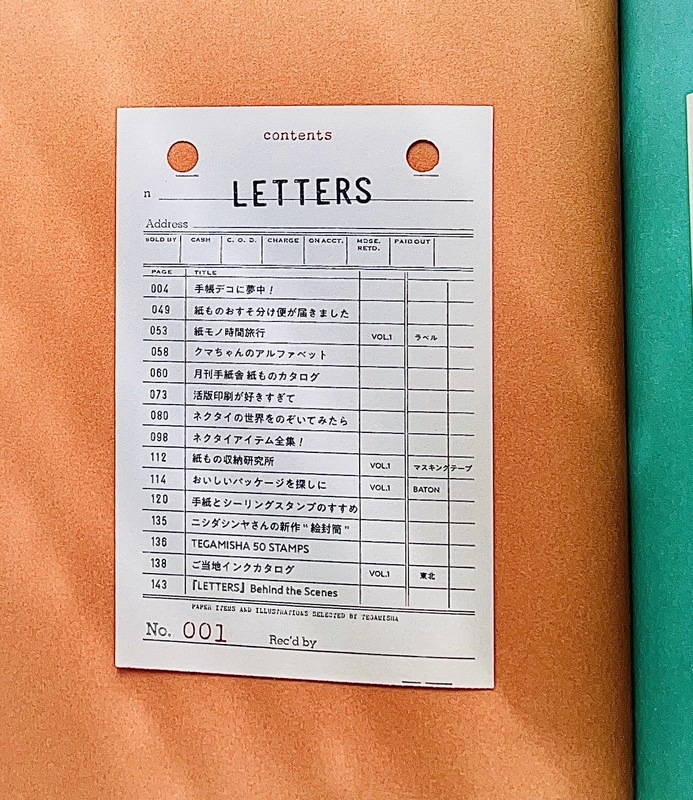 contents
n LETTERS
Address
SOLD BY CASH C. O. D. CHARGE ON ACCT. MDSE. RETD. PAID OUT
PAGE TITLE
004 手帳デコに夢中！
049 紙ものおすそ分け便が届きました
053 紙モノ時間旅行 VOL.1 ラベル
058 クマちゃんのアルファベット
060 月刊手紙舎 紙ものカタログ
073 活版印刷が好きすぎて
080 ネクタイの世界をのぞいてみたら
098 ネクタイアイテム全集！
112 紙もの収納研究所 VOL.1 マスキングテープ
114 おいしいパッケージを探しに VOL.1 BATON
120 手紙とシーリングスタンプのすすめ
135 ニシダシンヤさんの新作“絵封筒”
136 TEGAMISHA 50 STAMPS
138 ご当地インクカタログ VOL.1 東北
143 『LETTERS』Behind the Scenes
PAPER ITEMS AND ILLUSTRATIONS SELECTED BY TEGAMISHA
No. 001 Rec'd by